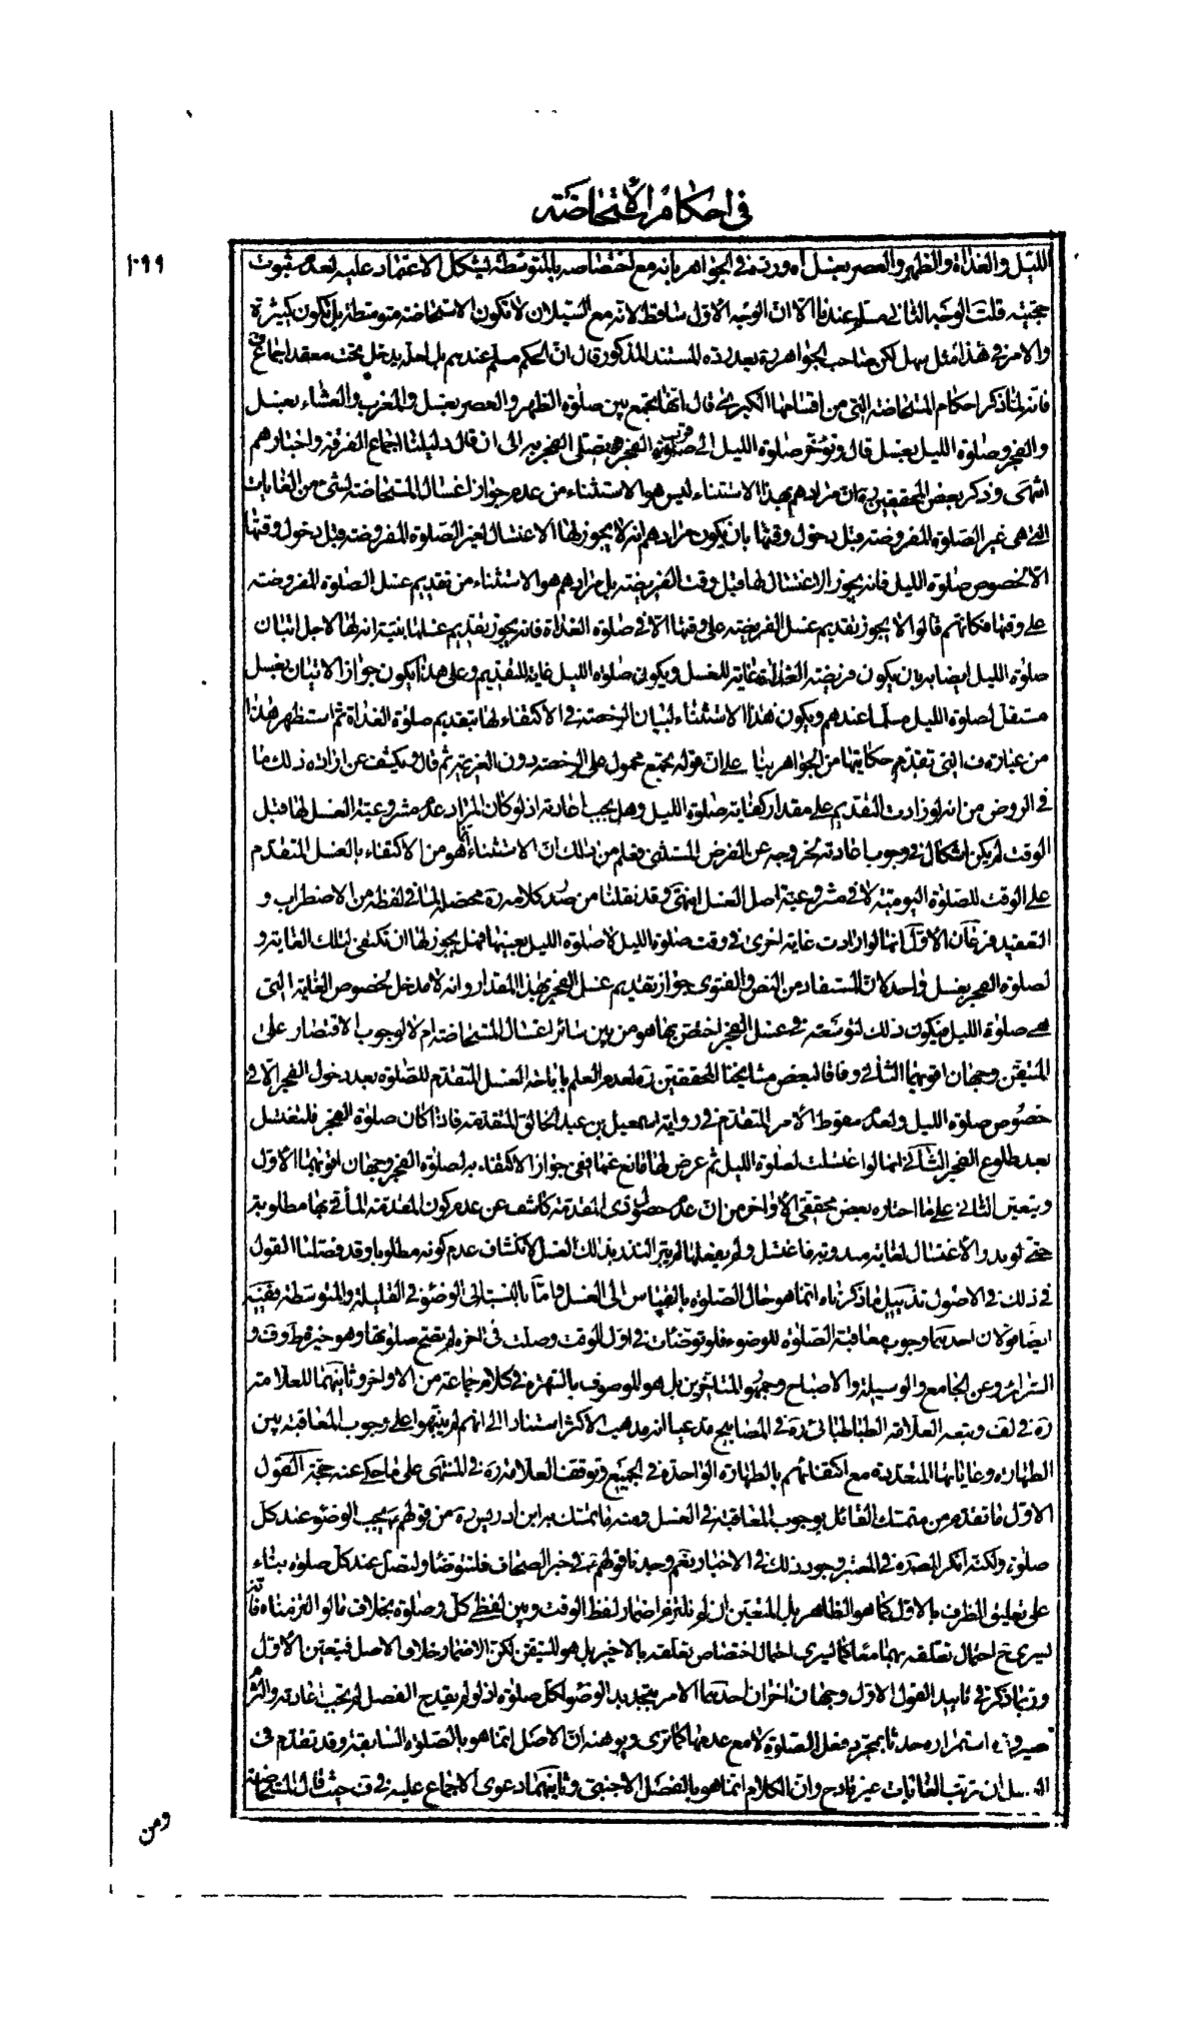 في احكام الاستحاضة
١٠٩٩
الليل والغداة والظهر والعصر بغسل اه ورده في الجواهر بانه مع اختصاصه بالمتوسطة يشكل الاعتماد عليه لعدم ثبوت
حجيته قلت الوجه الثاني مسلم عندنا الا ان الوجه الاول ساقط لانه مع السيلان لا تكون الاستحاضة متوسطة بل تكون كثيرة
والامر في هذا سهل لكن صاحب الجواهر ره بعد رده للمستند المذكور قال ان الحكم مسلم عندهم بل لعله يدخل تحت معقد اجماع ف
فانه لما ذكر احكام المستحاضة التي من اقسامها الكبرى قال انها تجمع بين صلوة الظهر والعصر بغسل والمغرب والعشاء بغسل
والفجر وصلوة الليل بغسل قال وتؤخر صلوة الليل الى قرب الفجر وتصلى الفجر به الى ان قال دليلنا اجماع الفرقة واخبارهم
انتهى وذكر بعض المحققين ره ان مرادهم بهذا الاستثناء ليس هو الاستثناء من عدم جواز اغتسال المستحاضة لشئ من الغايات
التي هي غير الصلوة المفروضة قبل دخول وقتها بان يكون مرادهم انه لا يجوز لها الاغتسال لغير الصلوة المفروضة قبل دخول وقتها
الا لخصوص صلوة الليل فانه يجوز الاغتسال لها قبل وقت الفريضة بل مرادهم هو الاستثناء من تقديم غسل الصلوة المفروضة
على وقتها فكانهم قالوا لا يجوز تقديم غسل الفريضة على وقتها الا في صلوة الغداة فانه يجوز تقديم غسلها بنية انه لها لاجل اتيان
صلوة الليل ايضا به بان يكون فريضة الغداة غاية للغسل ويكون صلوة الليل غاية للتقديم وعلى هذا يكون جواز الاتيان بغسل
مستقل لصلوة الليل مسلما عندهم ويكون هذا الاستثناء لبيان الرخصة في الاكتفاء لها بتقديم صلوة الغداة ثم استظهر هذا
من عبارة ف التي تقدم حكايتها من الجواهر بناء على ان قوله تجمع محمول على الرخصة دون العزيمة ثم قال ويكشف عن ارادة ذلك ما
في الروض من انه لو زادت التقديم على مقدار كفاية صلوة الليل وهل يجب اعادته اذ لو كان المراد عدم مشروعية الغسل لها قبل
الوقت لم يكن اشكال في وجوب اعادته لخروجه عن الفرض المستثنى فعلم من ذلك ان الاستثناء انما هو من الاكتفاء بالغسل المتقدم
على الوقت للصلوة اليومية لا في مشروعية اصل الغسل انتهى وقد نقلنا من صدر كلامه ره محصله لما في لفظه من الاضطراب و
التعقيد فرعان الاول انها لو ارادت غاية اخرى في وقت صلوة الليل لا صلوة الليل بعينها فهل يجوز لها ان تكتفي لتلك الغاية و
لصلوة الفجر بغسل واحد لان المستفاد من النص والفتوى جواز تقديم غسل الفجر بهذا المقدار وانه لا مدخل لخصوص الغاية التي
هي صلوة الليل فيكون ذلك لتوسعة في غسل الفجر اختص بها هو من بين سائر اغسال المستحاضة ام لا لوجوب الاقتصار على
المتيقن وجهان اقويهما الثاني وفاقا لبعض مشايخنا المحققين ره لعدم العلم باباحة الغسل المتقدم للصلوة بعد دخول الفجر الا في
خصوص صلوة الليل ولعدم سقوط الامر المتقدم في رواية اسمعيل بن عبد الخالق المتقدمة فاذا كان صلوة الفجر فلتغتسل
بعد طلوع الفجر الثاني انها لو اغتسلت لصلوة الليل ثم عرض لها مانع عنها ففي جواز الاكتفاء به لصلوة الفجر وجهان اقويهما الاول
ويتعين الثاني على ما اختاره بعض محققي الاواخر من ان عدم حصول ذى المقدمة كاشف عن عدم كون المقدمة المأتي بها مطلوبة
حتى لو بدر الاغتسال لغاية مندوبة فاغتسل ولم يفعلها لم يبر النذر بذلك الغسل لانكشاف عدم كونه مطلوبا وقد فصلنا القول
في ذلك في الاصول تذييل ما ذكرناه انما هو حال الصلوة بالقياس الى الغسل واما بالنسبة الى الوضوء في القليلة والمتوسطة ففيه
ايضا قولان احدهما وجوب معاقبة الصلوة للوضوء فلو توضأت في اول الوقت وصلت في اخره لم تصح صلوتها وهو خيرة ط وف و
السرائر وعن الجامع والوسيلة والاصباح وجمهور المتاخرين بل هو الموصوف بالشهرة في كلام جماعة من الاواخر وثانيهما للعلامة
ره في لف وتبعه العلامة الطباطبائي ره في المصابيح مدعيا انه مذهب الاكثر استنادا الى انهم لم ينبهوا على وجوب المعاقبة بين
الطهارة وغاياتها المتعددة مع اكتفائهم بالطهارة الواحدة في الجميع وتوقف العلامة ره في المنتهى على ما حكي عنه حجة القول
الاول ما تقدم من متمسك القائل بوجوب المعاقبة في الغسل ومنه ما تمسك به ابن ادريس ره من قولهم يجب الوضوء عند كل
صلوة ولكنه انكر المصنف ره في المعتبر وجود ذلك في الاخبار نعم وجدنا قولهم ع في خبر الصحاف فلتتوضأ ولتصل عند كل صلوة بناء
على تعليق الظرف بالاول كما هو الظاهر بل المتعين ان لم نلتزم اضمار لفظ الوقت وبين لفظي كل وصلوة بخلاف ما لو التزمناه فانه
يسرى ح احتمال تعلقه بهما معا كما يسرى احتمال اختصاص تعلقه بالاخير بل هو المتيقن لكن الاضمار خلاف الاصل فيتعين الاول
وربما ذكر في تاييد القول الاول وجهان اخران احدهما الامر بتجديد الوضوء لكل صلوة اذ لو لم يقدح الفصل لم تجب اعادته والتزام
صيرورة استمراره حدثا بمجرد فعل الصلوة لا مع عدمها كما ترى ويوهنه ان الاصل انما هو بالصلوة السابقة وقد تقدم في
ان ترتب الغايات غير قادح وان الكلام انما هو بالفصل الاجنبي وثانيهما دعوى الاجماع عليه في ف حيث قال المستحاضة
ومن